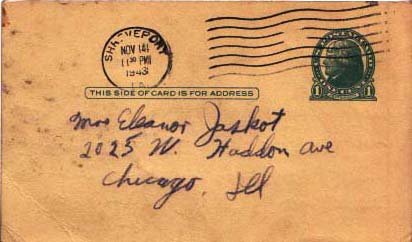 SHREVEPORT
NOV 14
11 30 PM
1943
LA.
THIS SIDE OF CARD IS FOR ADDRESS
1 1
Mrs Eleanor Jaskot
2025 W. Haddon Ave
Chicago, Ill